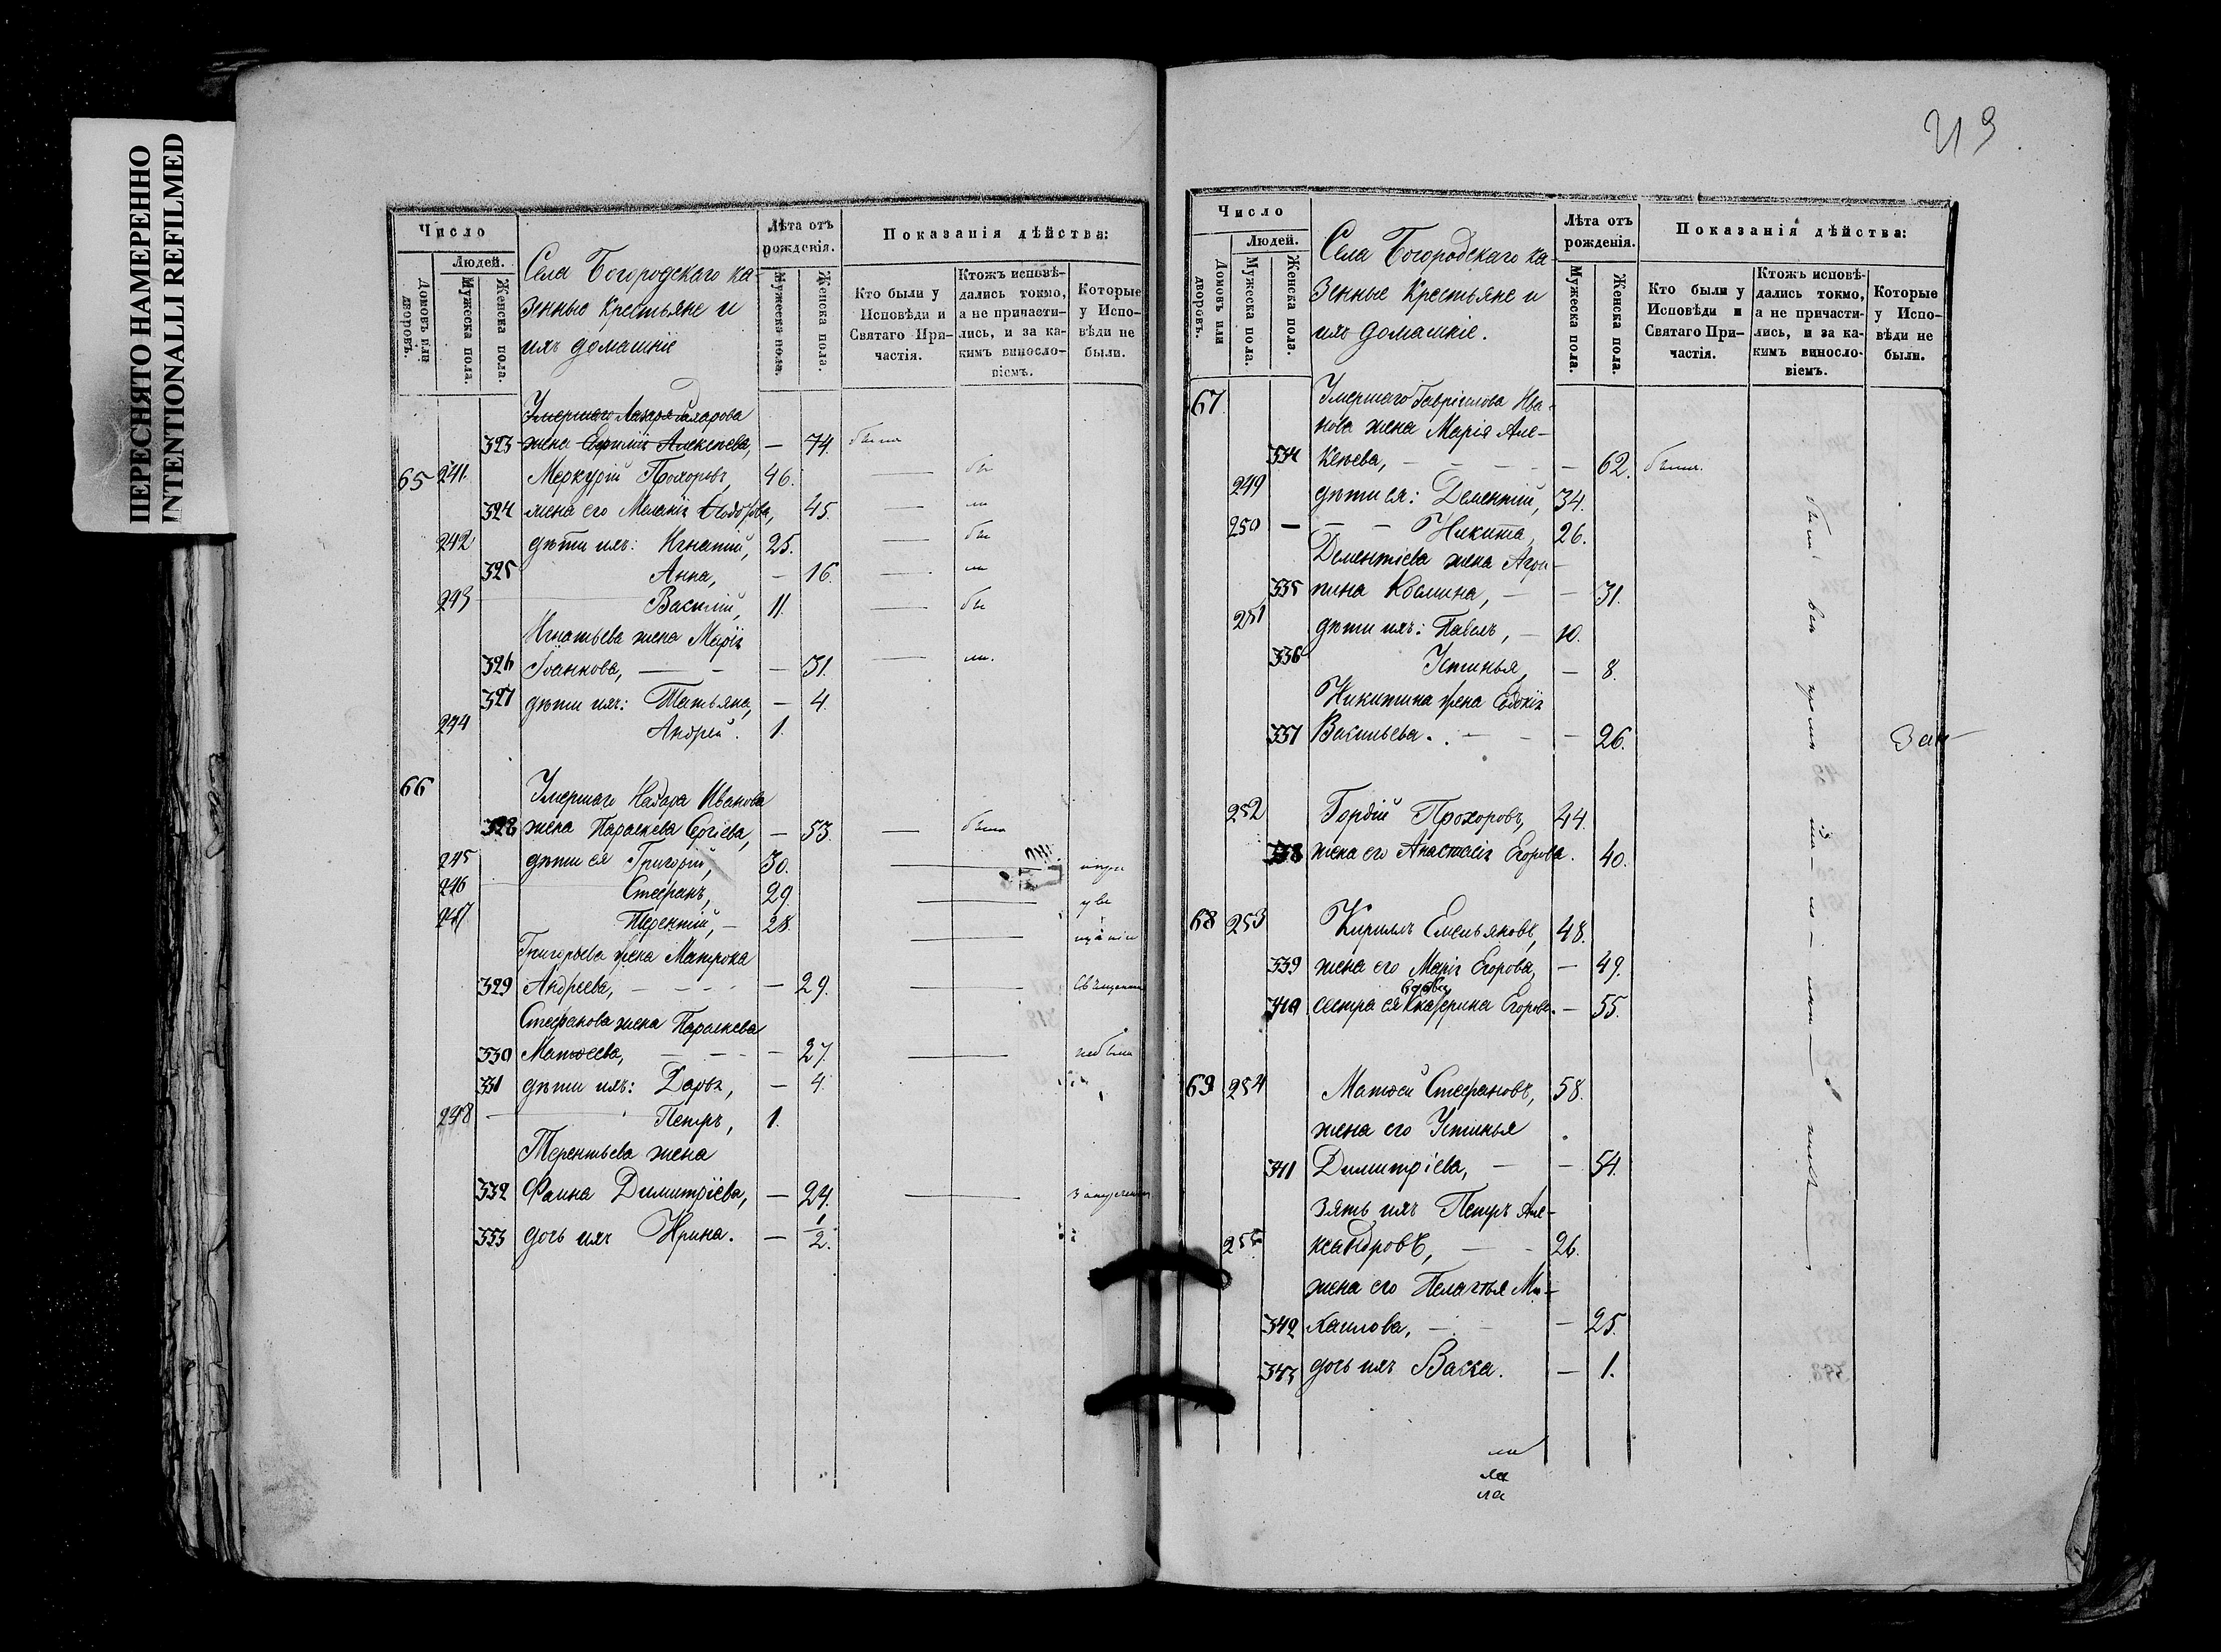 ПЕРЕСНЯТО НАМЕРЕННО
INTENTIONALLI REFILMED
Число
Людей.
Домовъ или дворовъ.
Мужеска пола.
Женска пола.
Села Богородскаго ка-
зенные Крестьяне и
ихъ домашніе
Лѣта отъ рожденія.
Мужеска пола.
Женска пола.
Показанія дѣйства:
Кто были у Исповѣди и Святаго При-частія.
Ктожъ исповѣ-дались токмо, а не причасти-лись, и за ка-кимъ винословіемъ.
Которые у Испо-вѣди не были.
Умершаго
323 жена Алексѣева, — 74. была
65 241. Меркурій Прохоровъ, 46. бы
324 жена его Меланія Ѳедорова, 45. ли
242 дѣти ихъ: Игнатій, 25. бы
325 Анна, — 16. ли
243 Василій, 11. бы
Игнатьева жена Марія
326 Іоаннова, — 31. ли.
327 дѣти ихъ: Татьяна, — 4.
244 Андрей. 1.
66 Умершаго Назара Иванова
328 жена Параскева Сергіева, — 53. была
245 дѣти ея Григорій, 30.
246 Стефанъ, 29.
247 Терентій, — 28.
Григорьева жена Матрона
329 Андреева, — 29.
Стефанова жена Параскева
330 Матѳеева, — 27. небыли
331 дѣти ихъ: Дарья, — 4.
248 Петръ, 1.
Терентьева жена
332 Фаина Димитріева, — 24.
333 дочь ихъ Ирина. — 1/2.
213
Число
Людей.
Домовъ или дворовъ.
Мужеска пола.
Женска пола.
Села Богородскаго ка-
зенные Крестьяне и
ихъ домашніе.
Лѣта отъ рожденія.
Мужеска пола.
Женска пола.
Показанія дѣйства:
Кто были у Исповѣди и Святаго При-частія.
Ктожъ исповѣ-дались токмо, а не причасти-лись, и за ка-кимъ винословіемъ.
Которые у Испо-вѣди не были.
67 Умершаго Гавріилова Ива-
нова жена Марія Але-
334 ксѣева, — 62. была.
249 дѣти ея: Дементій, 34.
250 — Никита, 26.
Дементіева жена Агри-
335 пина Косьмина, — 31.
251 дѣти ихъ: Павелъ, — 10.
336 Устинья, — 8.
Никитина жена Евдокія
337 Васильева. — 26.
252 Гордій Прохоровъ, 44.
338 жена его Анастасія Егорова. 40.
68 253 Кириллъ Емельяновъ, 48.
339 жена его Марія Егорова, — 49.
вдова
340 сестра ея Екатерина Егорова. — 55.
69 254 Матѳей Стефановъ, 58.
жена его Устинья
341 Димитріева, — 54.
зять ихъ Петръ Але-
255 ксандровъ, — 26.
жена его Пелагія Ми-
342 хаилова, — 25.
343 дочь ихъ Васса. — 1.
ли
ла
ла